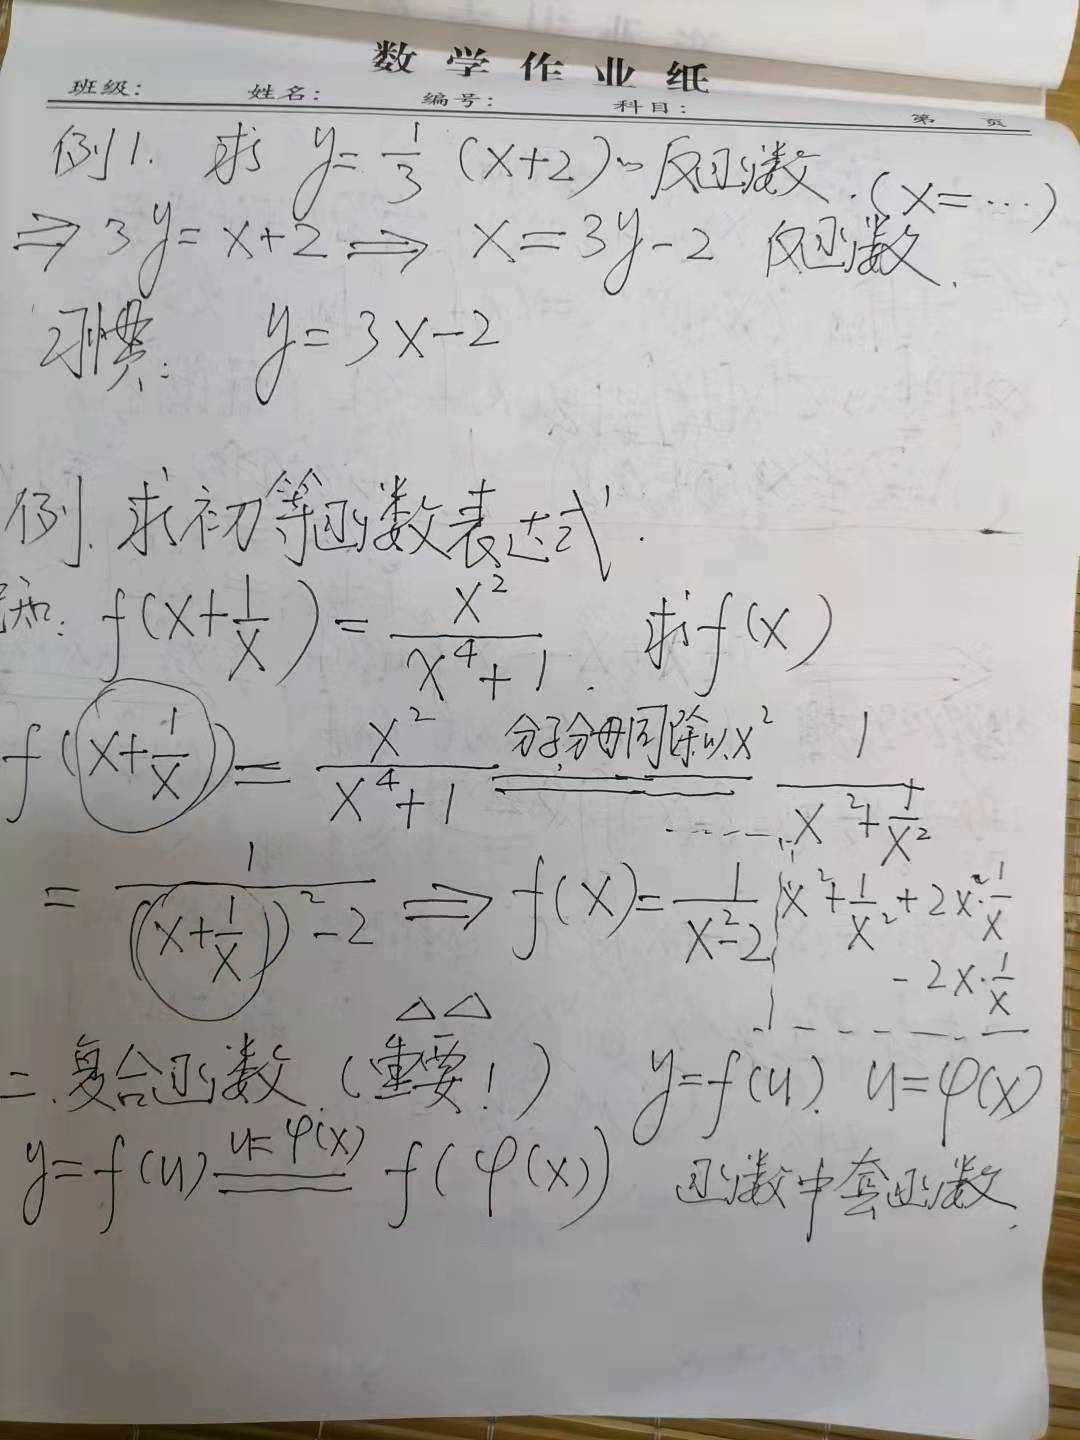 数学作业纸
班级: 姓名: 编号: 科目: 第 页
例1. 求 y=1/3 (x+2)~反函数.(x=…)
⇒ 3y=x+2 ⇒ x=3y-2 反函数.
习惯: y=3x-2
例.求初等函数表达式.
知: f(x+1/x)=x²/(x⁴+1). 求f(x)
f(x+1/x)=x²/(x⁴+1) 分子,分母同除以x² 1/(x²+1/x²)
=1/((x+1/x)²-2) ⇒ f(x)=1/(x²-2) x²+1/x²+2x·1/x
-2x·1/x
△△
二.复合函数.(重要!) y=f(u). u=φ(x)
y=f(u) u=φ(x) f(φ(x)) 函数中套函数.